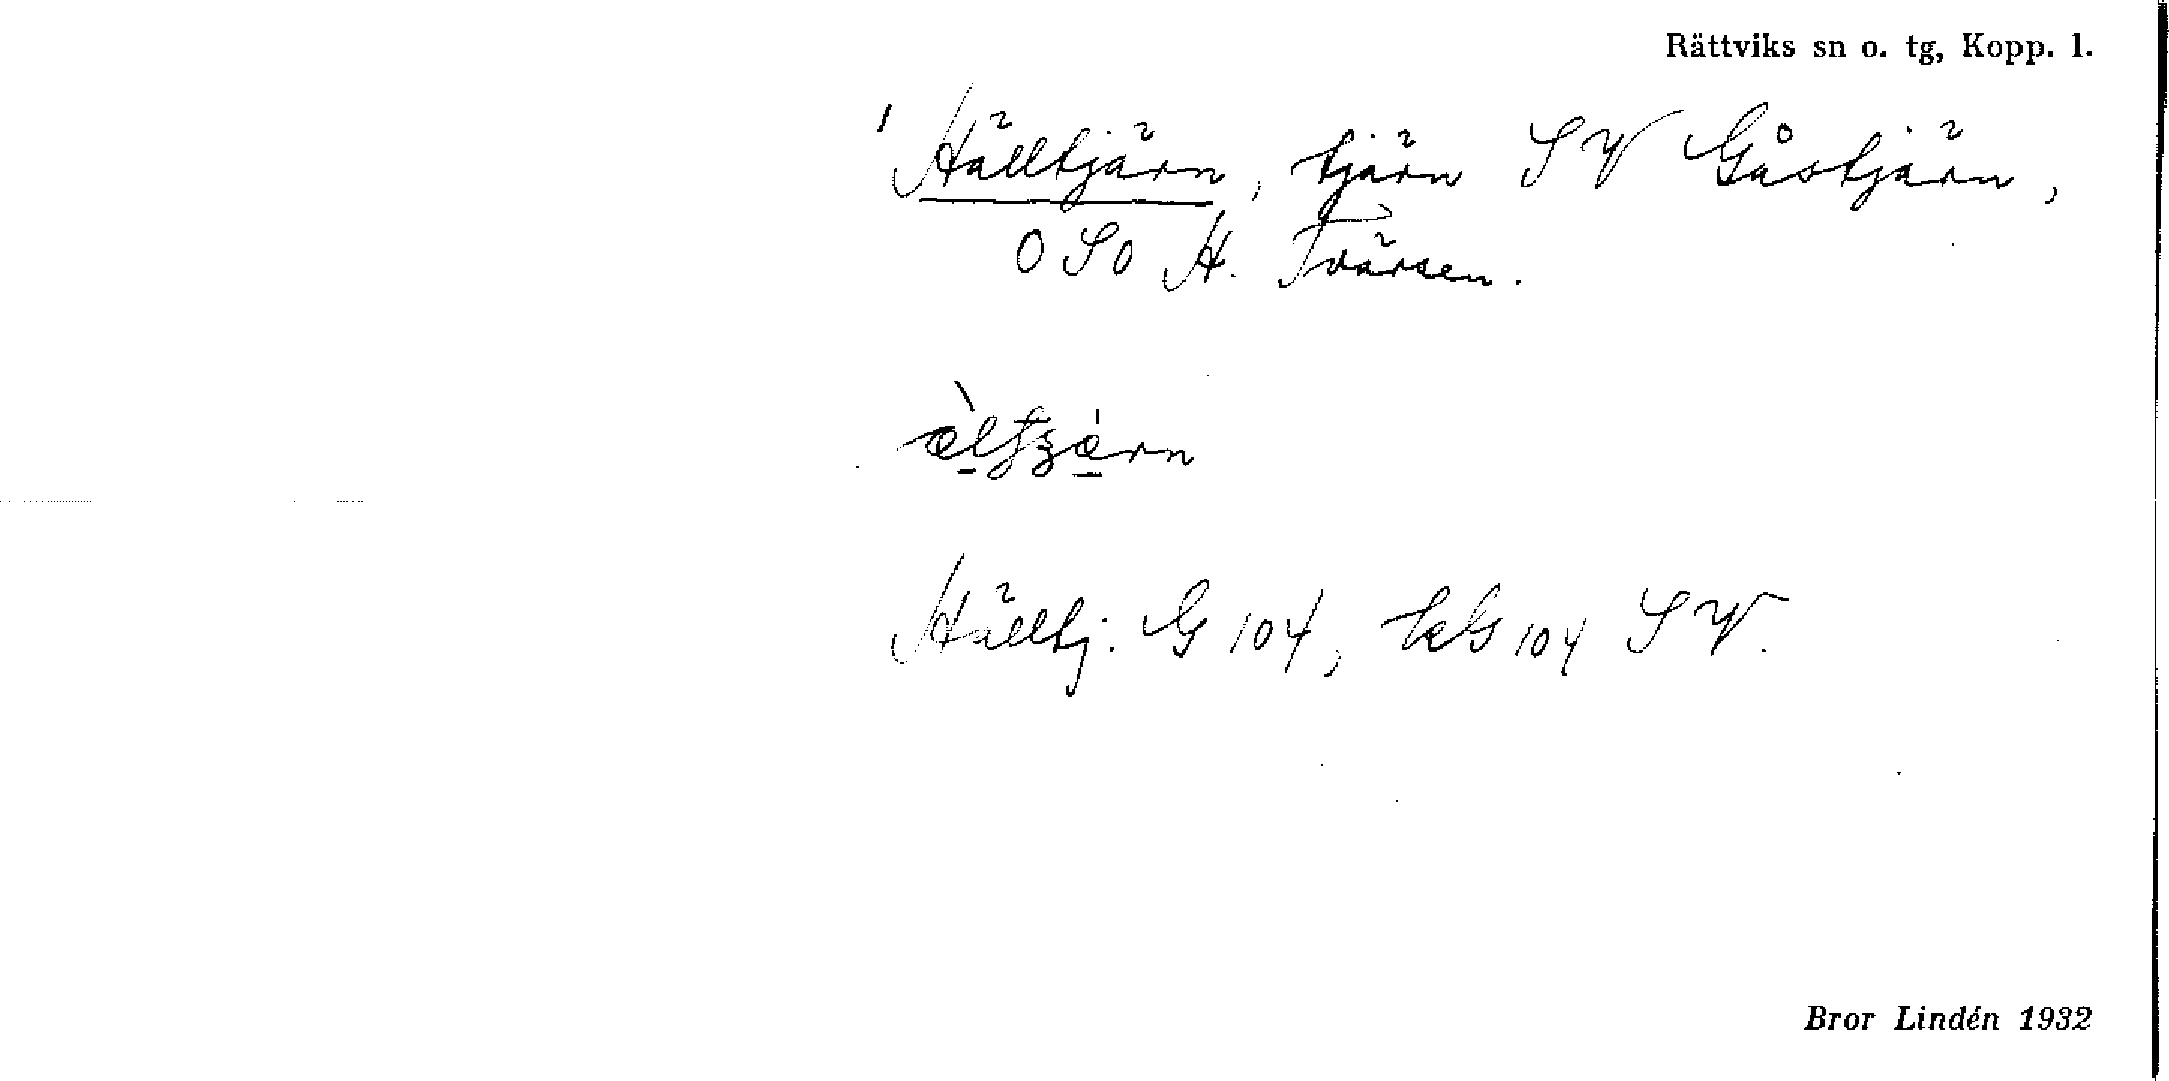 Rättviks sn o. tg, Kopp. l.
Hälltjärn, tjärn SV Gåstjärn,
OSO H. Tvärsen.
Hälltj. G 104, kG 104 SV.
Bror Lindén 1932